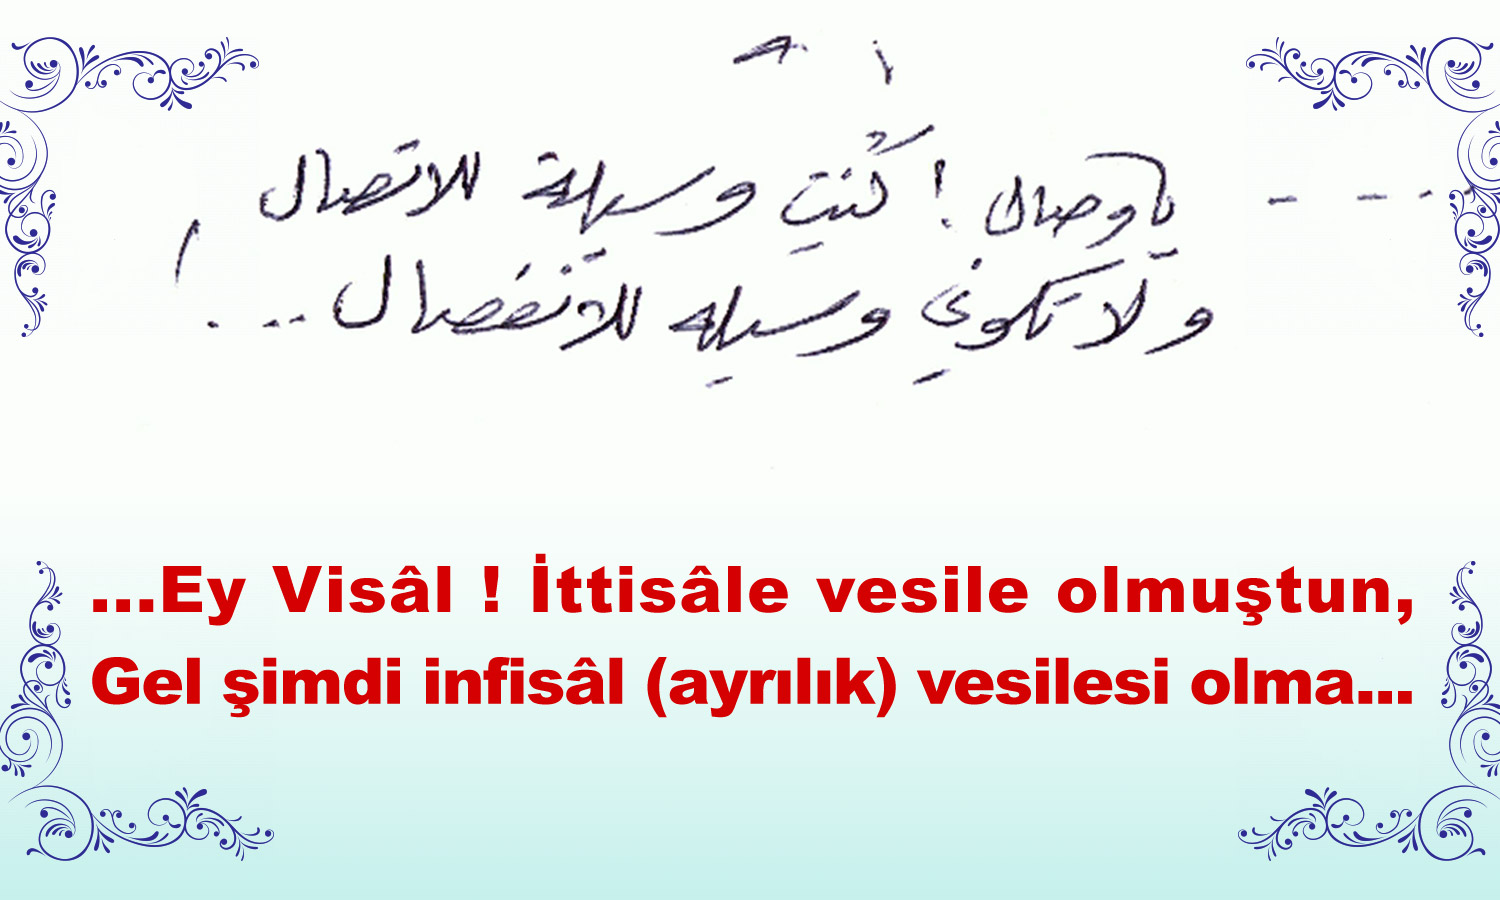 .... يا وصال ! كُنتِ وسيلة للاتصال
ولا تكوني وسيلةٍ للانفصال ... !
...Ey Visâl ! İttisâle vesile olmuştun,
Gel şimdi infisâl (ayrılık) vesilesi olma...